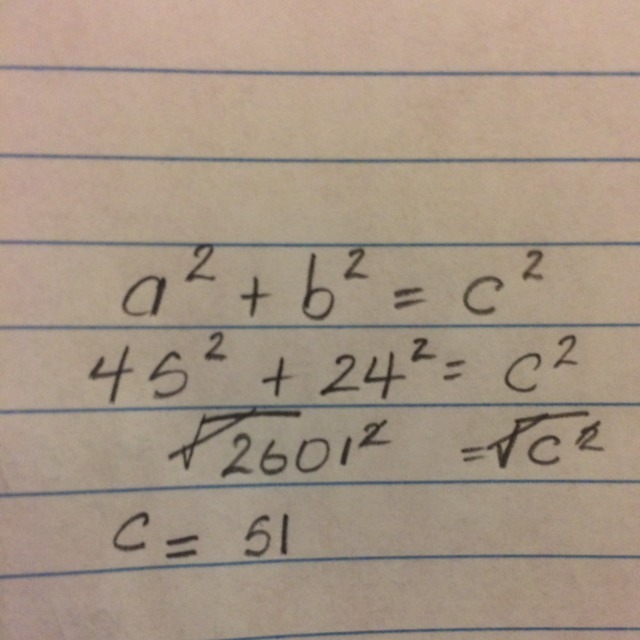 a² + b² = c²
45² + 24² = c²
√2601² = √c²
c = 51